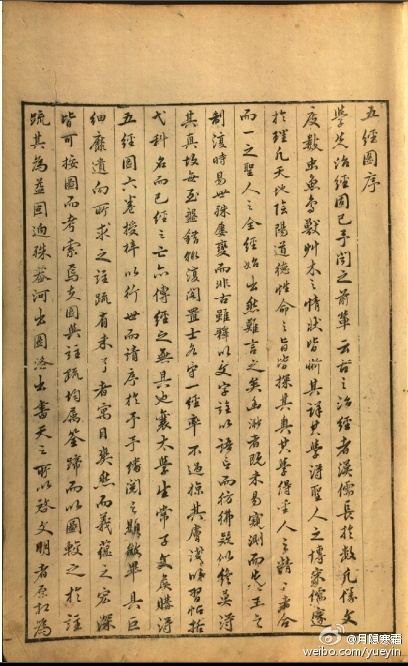 五經圖序
學先治經固已予聞之前輩云古之治經者漢儒長於數凡儀文
度數虫魚鳥獸艸木之情狀皆晰其詳其學得聖人之博宋儒邃
於理凡天地陰陽道德性命之旨皆探其奧其學得聖人之精二者合
而一之聖人之全經始出然難言之矣幽渺者既未易窺測而先王之
制復時易世殊屢變而非古雖釋以文字註以語言而彷彿疑似終莫得
其真故每至盤錯輒復閣置士名守一經率不過掠其膚淺以習帖括
弋科名而已經之亡亡傳經之無具也襄太學生常子文得
五經圖六卷授梓以行世而請序於予予繙閱之顯微畢具巨
細靡遺向所求之註疏有未了者寓目爽然而義蘊之宏深
皆可按圖而考索焉夫圖與註疏均屬筌蹄而以圖較之於註
疏其為益固迥殊河出圖洛出書天之所以啟文明者原為
@月隱寒霜
weibo.com/yueyin